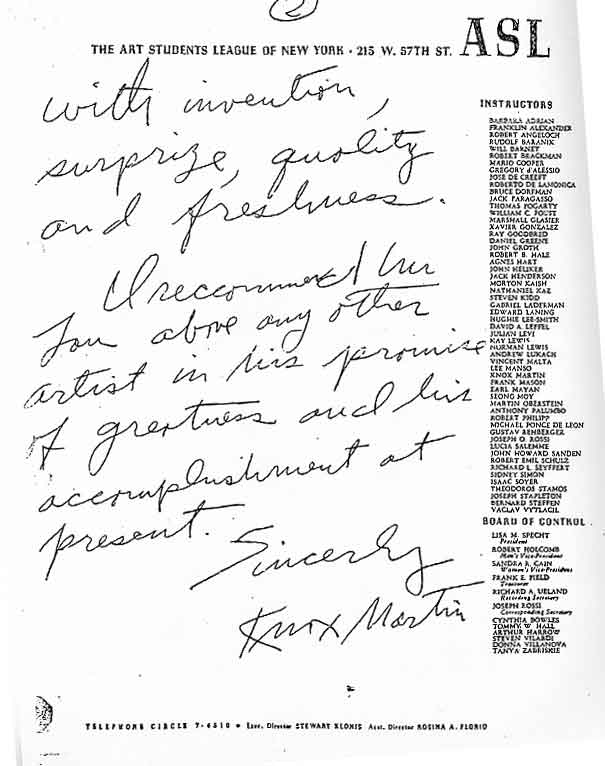 2
THE ART STUDENTS LEAGUE OF NEW YORK • 215 W. 57TH ST. ASL
with invention,
surprize, quality
and freshness.
I reccommend
you above any other
artist in his promise
of greatness and his
accomplishment at
present.
Sincerly
Knox Martin
INSTRUCTORS
BARBARA ADRIAN
FRANKLIN ALEXANDER
ROBERT ANGELOCH
RUDOLF BARANIK
WILL BARNET
ROBERT BRACKMAN
MARIO COOPER
GREGORY d'ALESSIO
JOSE DE CREEFT
ROBERTO DE LAMONICA
BRUCE DORFMAN
JACK FARAGASSO
THOMAS FOGARTY
WILLIAM C. FOUST
MARSHALL GLASIER
XAVIER GONZALEZ
RAY GOODBRED
DANIEL GREENE
JOHN GROTH
ROBERT B. HALE
AGNES HART
JOHN HELIKER
JACK HENDERSON
MORTON KAISH
NATHANIEL KAZ
STEVEN KIDD
GABRIEL LADERMAN
EDWARD LANING
HUGHIE LEE-SMITH
DAVID A. LEFFEL
JULIAN LEVI
KAY LEWIS
NORMAN LEWIS
ANDREW LUKACH
VINCENT MALTA
LEE MANSO
KNOX MARTIN
FRANK MASON
EARL MAYAN
SEONG MOY
MARTIN OBERSTEIN
ANTHONY PALUMBO
ROBERT PHILIPP
MICHAEL PONCE DE LEON
GUSTAV REHBERGER
JOSEPH O. ROSSI
LUCIA SALEMME
JOHN HOWARD SANDEN
ROBERT EMIL SCHULZ
RICHARD L. SEYFFERT
SIDNEY SIMON
ISAAC SOYER
THEODOROS STAMOS
JOSEPH STAPLETON
BERNARD STEFFEN
VACLAV VYTLACIL
BOARD OF CONTROL
LISA M. SPECHT
President
ROBERT HOLCOMB
Men's Vice-President
SANDRA R. CAIN
Women's Vice-President
FRANK E. FIELD
Treasurer
RICHARD A. UELAND
Recording Secretary
JOSEPH ROSSI
Corresponding Secretary
CYNTHIA BOWLES
TOMMY W HALL
ARTHUR HARROW
STEVEN VILARDI
DONNA VILLANOVA
TANYA ZABRISKIE
TELEPHONE CIRCLE 7-4510 • Exec. Director STEWART KLONIS Asst. Director ROSINA A. FLORIO